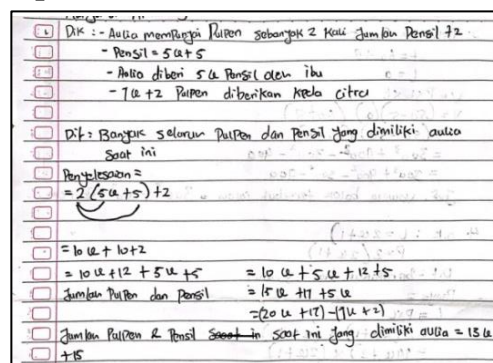 Dik : - Aulia mempunyai Pulpen sebanyak 2 kali Jumlah Pensil +2
- Pensil = 5u+5
- Aulia diberi 5u Pensil oleh ibu
- 7u+2 Pulpen diberikan kpda citra
Dit : Banyak seluruh Pulpen dan Pensil yang dimiliki aulia
Saat ini
Penyelesaian =
= 2 (5u+5)+2
= 10u + 10+2
= 10u+12 + 5u+5 = 10u+5u+12+5
Jumlah Pulpen dan Pensil = 15u +17 +5u
= (20u +17) -(7u+2)
Jumlah Pulpen & Pensil saat ini yang dimiliki aulia = 13u
+15